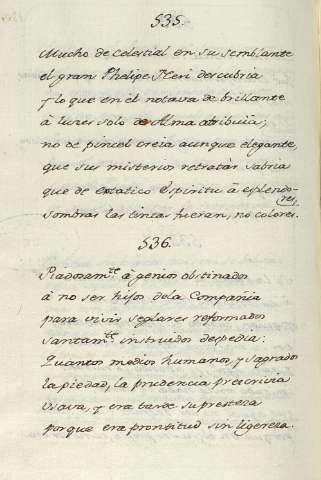 535.
Mucho de Celestial en su semblante
el gran Phelipe Neri descubria
y lo que en él notava de brillante
à luzes solo de Alma atribuia;
no de pincel creia aunque elegante,
que sus misterios retratàr sabria
que de extatico Espiritu à esplendo-
res,
sombras las tintas fueran, no colores.
536.
Piadosam.te à genios obstinados
à no ser hijos dela Compañia
para vivir seglares reformados
santam.te instruidos despedia:
Quantos medios humanos, y sagrados
la piedad, la prudencia prescrivia
usava, y era tarde su presteza
porque era prontitud sin ligereza.